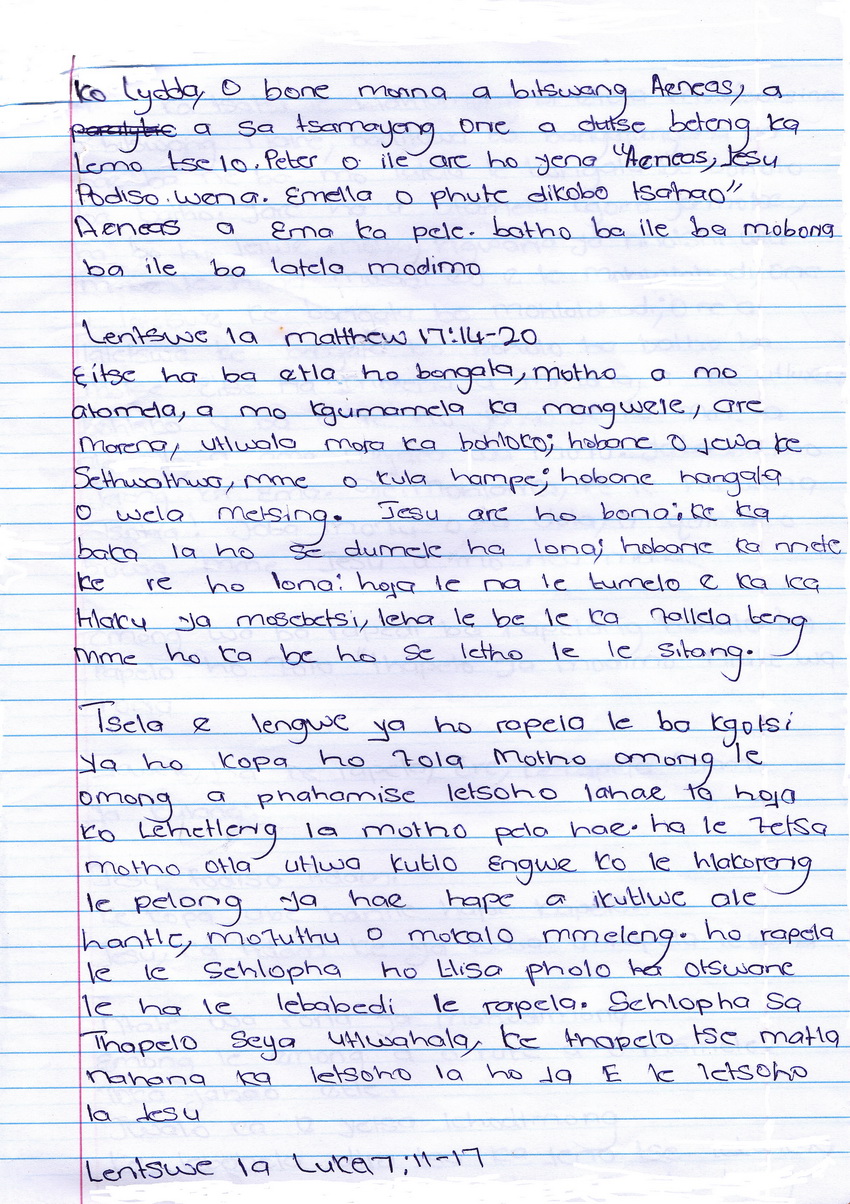 Ko Lydda, O bone monna a bitswang Aeneas, a
paralytic a sa tsamayeng one a dutse beteng ka
lemo tse 10. Peter o ile are ho yena "Aeneas, Jesu
Podiso wena. Emella o phute dikobo tsahao"
Aeneas a Ema ka pele. batho ba ile ba mobona
ba ile ba latela modimo
Lentswe la matthew 17:14-20
Eitse ha ba etla ho bongata, motho a mo
atomela, a mo kgumamela ka mangwele, are
Morena, utlwela mora ka bohloko; hobane O jewa ke
Sethwathwa, mme o kula hampe; hobane hangata
O wela metsing. Jesu are ho bona: ke ka
baka la ho se dumele ha lona; hobane ka nnete
ke re ho lona: hoja le na le tumelo e ka ka
tlhaku ya mosebetsi, leha le be le ka 7allela teng
mme ho ka be ho se letho le le sitang.
Tsela e lengwe ya ho rapela le ba kgotsi
ya ho kopa ho 7ola Motho omong le
omong a phahamise letsoho lahae to hoja
ko Lehetleng la motho pela hae. ha le 7etsa
motho otla utlwa kutlo Engwe ko le hlakoreng
le pelong ya hae hape a ikutlwe ale
hantle, mo7uthu o mokalo mmeleng. ho rapela
le le Sehlopha ho tlisa pholo ha otswane
le ha le lebabedi le rapela. Sehlopha Sa
Thapelo Seya utlwahala, ke thapelo tse matla
nahana ka letsoho la ho ja E le letsoho
la Jesu
Lentswe la Luka 7:11-17